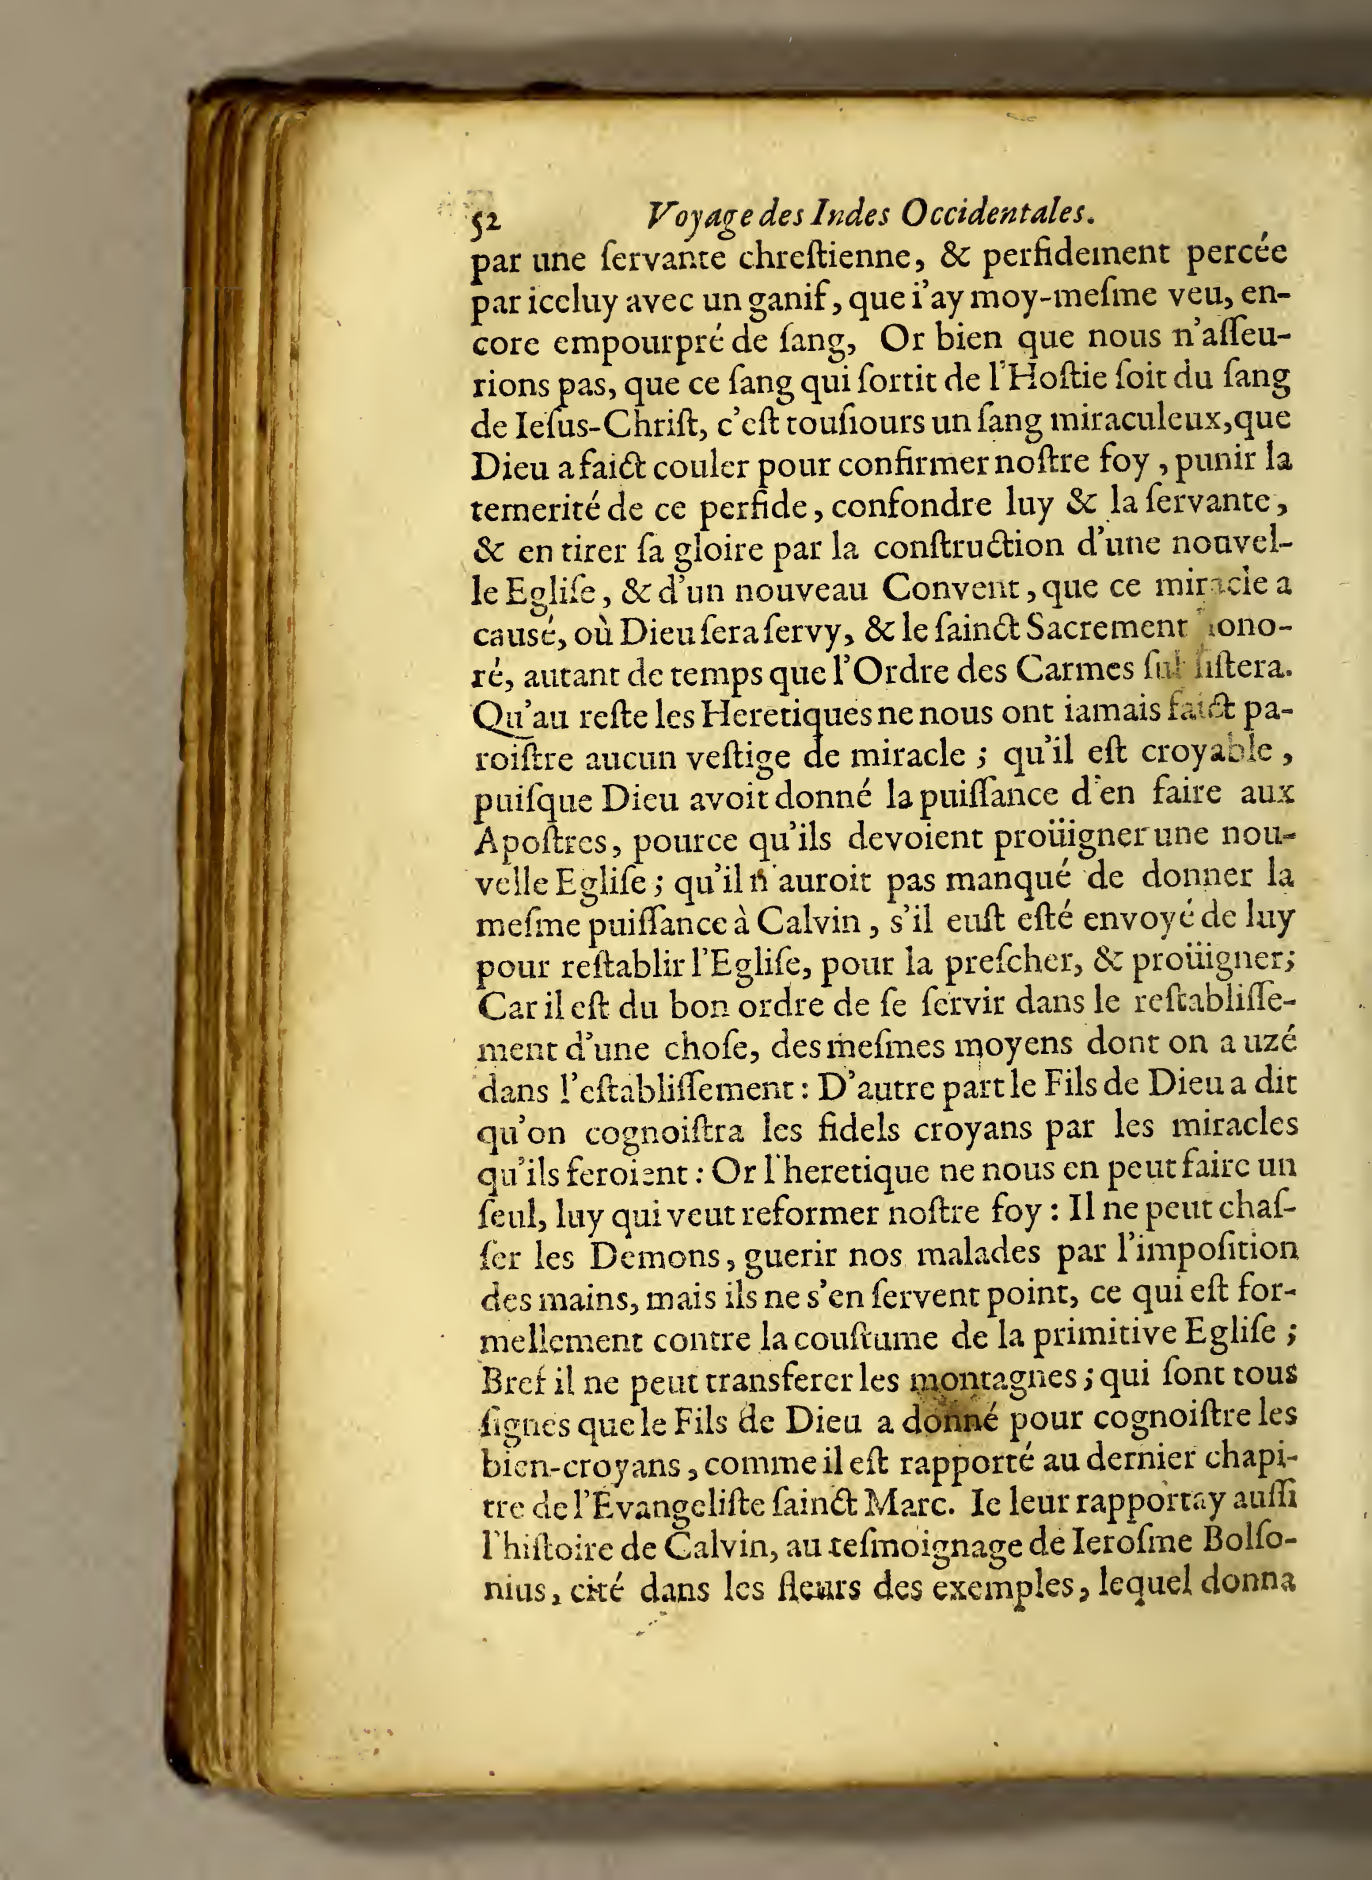 52 Voyage des Indes Occidentales.
par une ſervante chreſtienne, & perfidement percée
par iceluy avec un ganif, que i'ay moy-meſme veu, en-
core empourpré de ſang, Or bien que nous n'aſſeu-
rions pas, que ce ſang qui ſortit de l'Hoſtie ſoit du ſang
de Ieſus-Chriſt, c'eſt touſiours un ſang miraculeux, que
Dieu a faict couler pour confirmer noſtre foy, punir la
temerité de ce perfide, confondre luy & la ſervante,
& en tirer ſa gloire par la conſtruction d'une nouvel-
le Egliſe, & d'un nouveau Convent, que ce miracle a
causé, où Dieu ſera ſervy, & le ſainct Sacrement hono-
ré, autant de temps que l'Ordre des Carmes ſubſiſtera.
Qu'au reſte les Heretiques ne nous ont iamais faict pa-
roiſtre aucun veſtige de miracle ; qu'il eſt croyable,
puiſque Dieu avoit donné la puiſſance d'en faire aux
Apoſtres, pource qu'ils devoient proüigner une nou-
velle Egliſe ; qu'il n'auroit pas manqué de donner la
meſme puiſſance à Calvin, s'il euſt eſté envoyé de luy
pour reſtablir l'Egliſe, pour la preſcher, & proüigner;
Car il eſt du bon ordre de ſe ſervir dans le reſtabliſſe-
ment d'une choſe, des meſmes moyens dont on a uzé
dans l'eſtabliſſement : D'autre part le Fils de Dieu a dit
qu'on cognoiſtra les fidels croyans par les miracles
qu'ils feroient : Or l'heretique ne nous en peut faire un
ſeul, luy qui veut reformer noſtre foy : Il ne peut chaſ-
ſer les Demons, guerir nos malades par l'impoſition
des mains, mais ils ne s'en ſervent point, ce qui eſt for-
mellement contre la couſtume de la primitive Egliſe ;
Bref il ne peut transferer les montagnes ; qui ſont tous
ſignes que le Fils de Dieu a donné pour cognoiſtre les
bien-croyans, comme il eſt rapporté au dernier chapi-
tre de l'Evangeliſte ſainct Marc. Ie leur rapportay auſſi
l'hiſtoire de Calvin, au teſmoignage de Ieroſme Bolſo-
nius, cité dans les fleurs des exemples, lequel donna